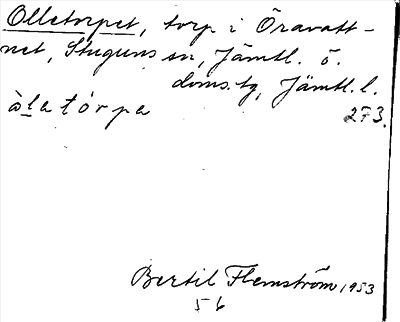 Olletorpet, torp i Öravatt-
net, Stuguns sn, Jämtl. ö.
doms.tg, Jämtl. l.
àlatórpa 273.
Bertil Flemström 1953
56